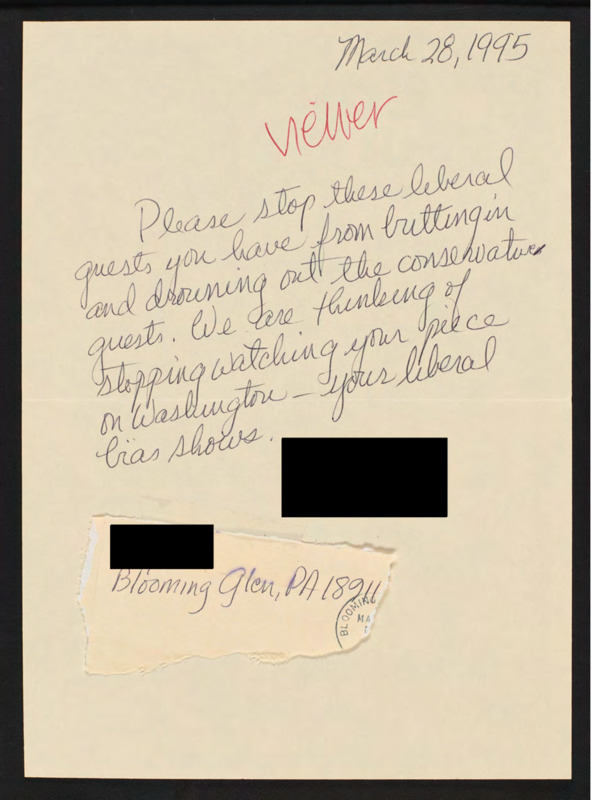 March 28, 1995
viewer
Please stop these liberal
guests you have from butting in
and drowning out the conservative
guests. We are thinking of
stopping watching your piece
on Washington – your liberal
bias shows.
Blooming Glen, PA 18911
BLOOMING
MA